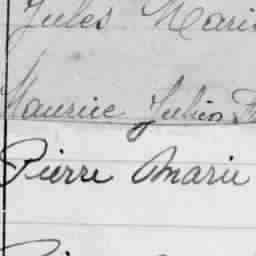 Jules Marie
Maurice Julien
Pierre Marie